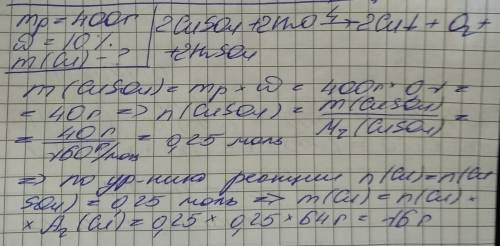 mр = 400г
ω = 10%
m(Cu) - ?
2CuSO4 + 2H2O эл→ 2Cu↓ + O2 +
+ 2H2SO4
m(CuSO4) = mр × ω = 400г · 0,1 =
= 40г => n(CuSO4) = m(CuSO4) / Mr(CuSO4) =
= 40г / 160г/моль = 0,25 моль
=> по ур-нию реакции n(Cu) = n(Cu
SO4) = 0,25 моль => m(Cu) = n(Cu) ·
× Ar(Cu) = 0,25 × 0,25 × 64г = 16г